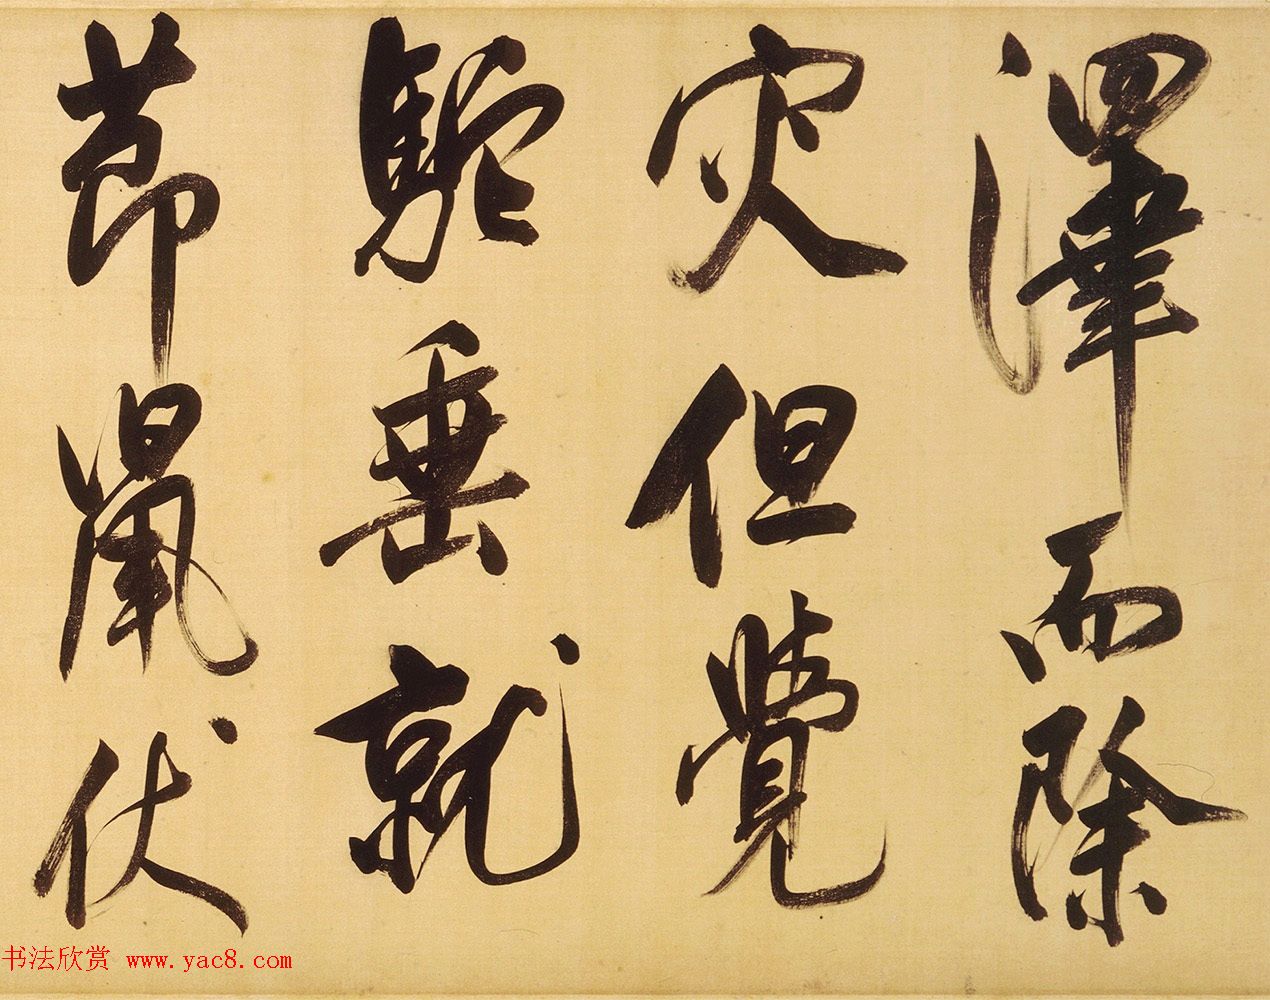 澤而除
灾但覺
駈垂就
節伏
书法欣赏 www.yac8.com